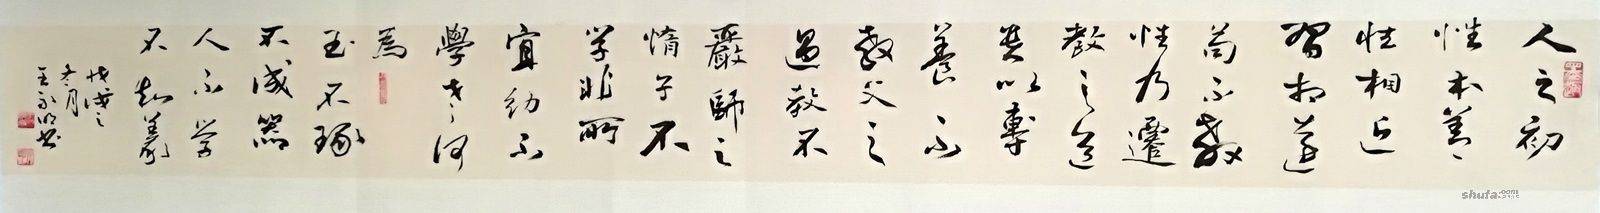 人之初
性本善
性相近
習相遠
苟不教
性乃遷
教之道
貴以專
養不
教父之
過教不
嚴師之
惰子不
学非所
宜幼不
學老何
為
玉不琢
不成器
人不学
不知義
戊戌之
冬月
shufa.com